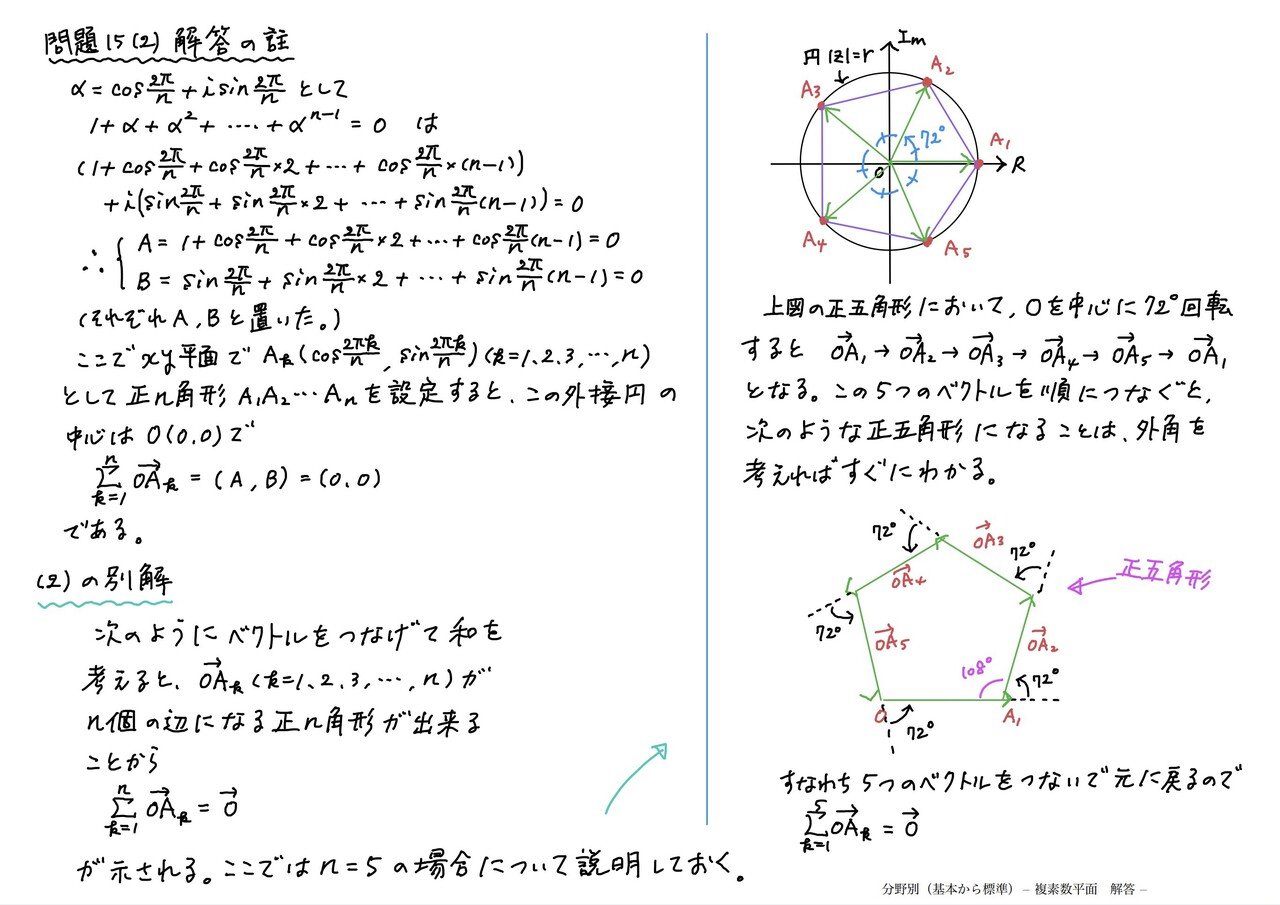 問題15(2) 解答の註
α = cos 2π/n + i sin 2π/n として
1 + α + α² + ‥‥ + αⁿ⁻¹ = 0 は
(1 + cos 2π/n + cos 2π/n ×2 + … + cos 2π/n ×(n-1))
+ i(sin 2π/n + sin 2π/n ×2 + … + sin 2π/n (n-1)) = 0
∴ { A = 1 + cos 2π/n + cos 2π/n ×2 + … + cos 2π/n (n-1) = 0
B = sin 2π/n + sin 2π/n ×2 + … + sin 2π/n (n-1) = 0
(それぞれA, Bと置いた。)
ここでxy平面で Aₖ(cos 2πk/n, sin 2πk/n) (k=1、2、3、…、n)
として正n角形 A₁A₂…Aₙ を設定すると、この外接円の
中心は O(0、0)で
n
Σ OA→ₖ = (A, B) = (0、0)
k=1
である。
(2) の別解
次のようにベクトルをつなげて和を
考えると、OA→ₖ (k=1、2、3、…、n) が
n個の辺になる正n角形が出来る
ことから
n
Σ OA→ₖ = 0→
k=1
が示される。ここではn=5の場合について説明しておく。
円|z|=r
Im
A₂
A₃
72°
A₁
O
R
A₄
A₅
上図の正五角形において, Oを中心に72°回転
すると OA₁→ → OA₂→ → OA₃→ → OA₄→ → OA₅→ → OA₁→
となる。この5つのベクトルを順につなぐと,
次のような正五角形になることは、外角を
考えればすぐにわかる。
72°
OA₃→
72°
OA₄→
正五角形
72°
OA₅→
OA₂→
108°
72°
O
72°
A₁
すなわち5つのベクトルをつないで元に戻るので
5
Σ OA→ₖ = 0→
k=1
分野別（基本から標準）– 複素数平面　解答 –